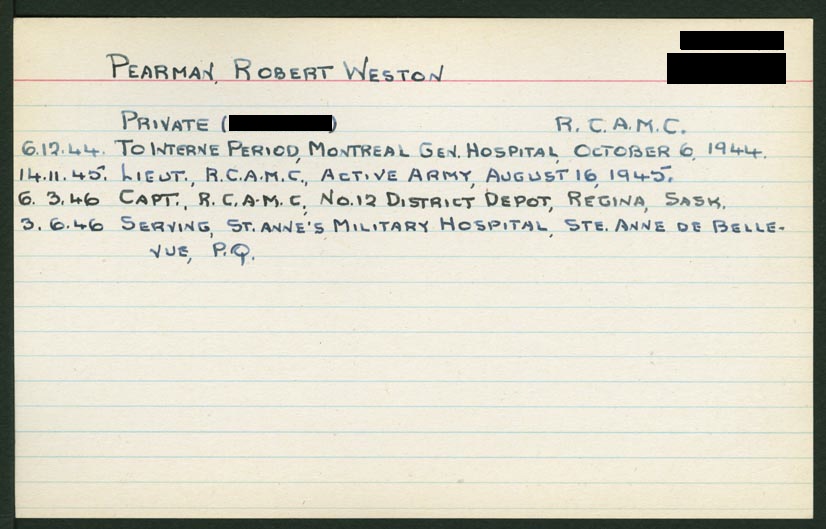 PEARMAN, ROBERT WESTON
PRIVATE ( ) R.C.A.M.C.
6.12.44. TO INTERNE PERIOD, MONTREAL GEN. HOSPITAL, OCTOBER 6, 1944.
14.11.45. LIEUT., R.C.A.M.C., ACTIVE ARMY, AUGUST 16, 1945.
6.3.46 CAPT., R.C.A.M.C, NO.12 DISTRICT DEPOT, REGINA, SASK.
3.6.46 SERVING, ST. ANNE'S MILITARY HOSPITAL, STE. ANNE DE BELLE-
VUE, P.Q.